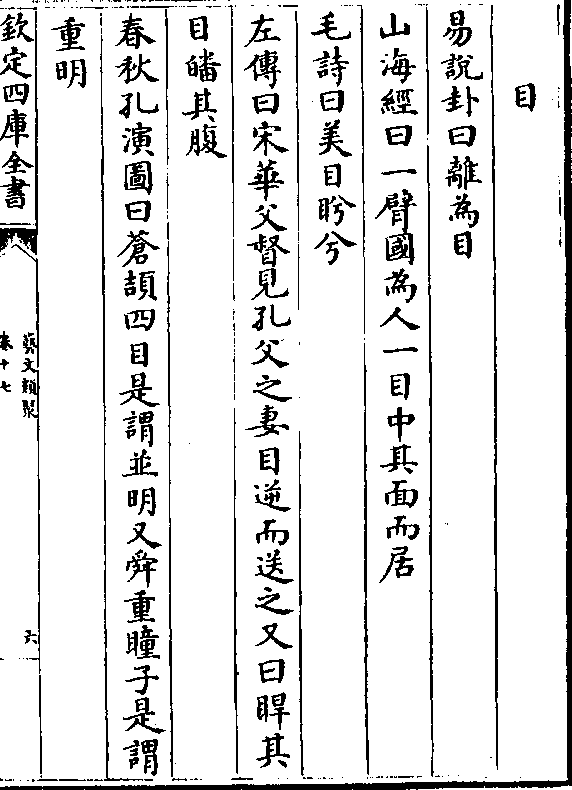 目
易說卦曰離為目
山海經曰一臂國為人一目中其面而居
毛詩曰美目盻兮
左傳曰宋華父督見孔父之妻目逆而送之又曰睅其
目皤其腹
春秋孔演圖曰蒼頡四目是謂並明又舜重瞳子是謂
重明
欽定四庫全書
藝文類聚
卷十七
六